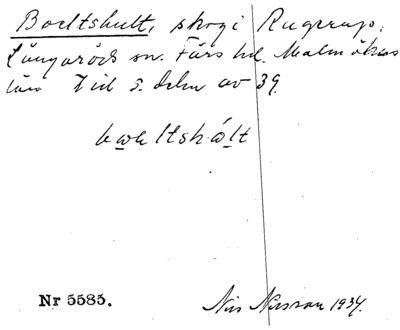 Bocltshult, skog i Rugerup,
Långaröds sn. Färs hd. Malmöhus
län Vid s. deln av 39.
Nr 5585.
Nils Nilsson 1934.